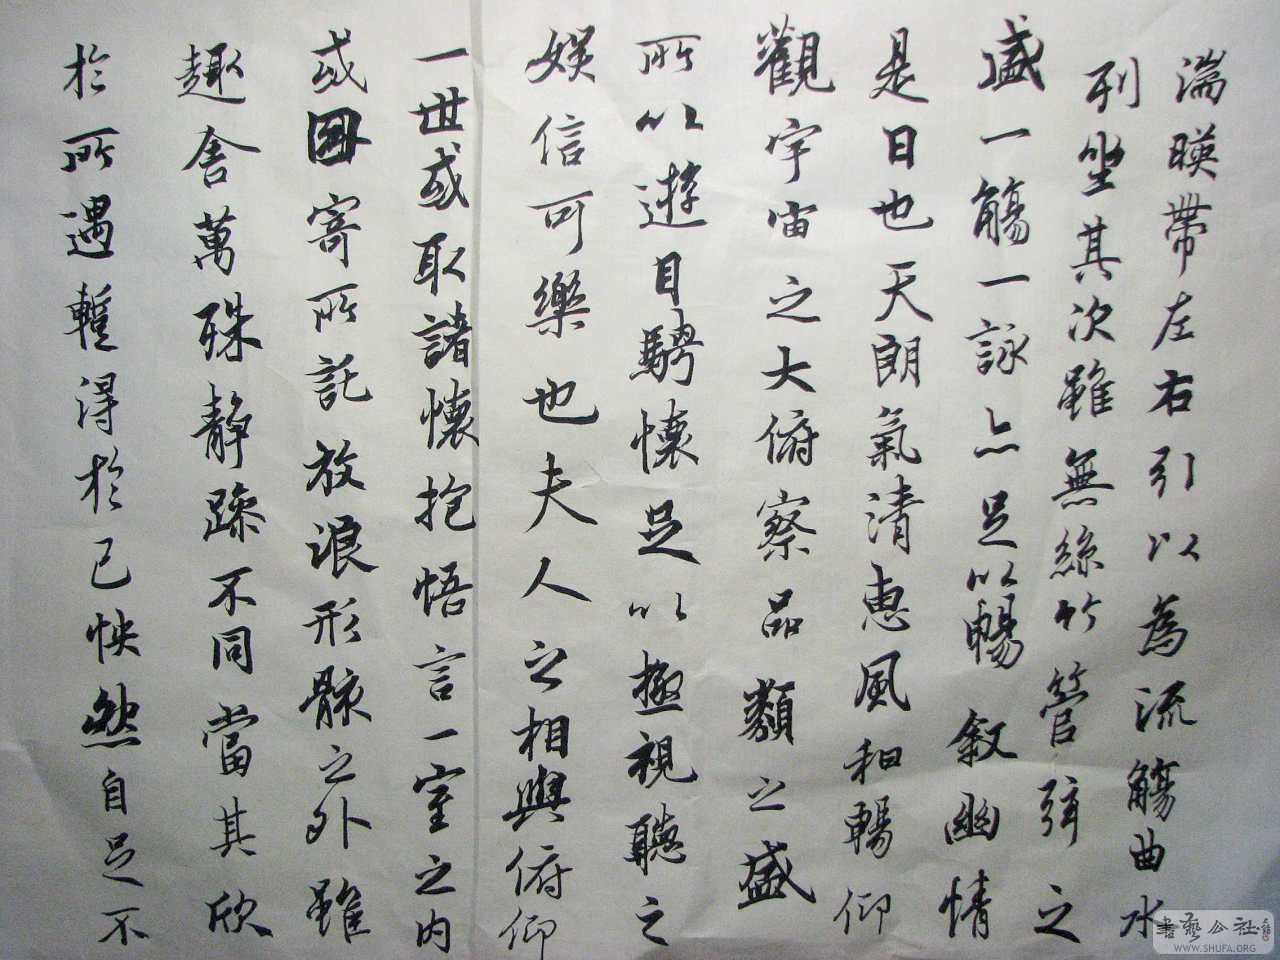 湍暎帶左右引以為流觴曲水
列坐其次雖無絲竹管弦之
盛一觴一詠亦足以暢敘幽情
是日也天朗氣清惠風和暢仰
觀宇宙之大俯察品類之盛
所以遊目騁懷足以極視聽之
娱信可樂也夫人之相與俯仰
一世或取諸懷抱悟言一室之内
或因寄所託放浪形骸之外雖
趣舍萬殊静躁不同當其欣
於所遇暫得於己怏然自足不
書藝公社
WWW.SHUFA.ORG